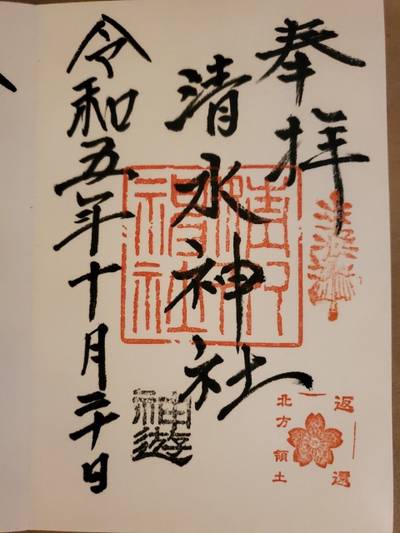 奉拝
清水神社
令和五年十月二十日
清水
神社
神遊
返還
北方領土